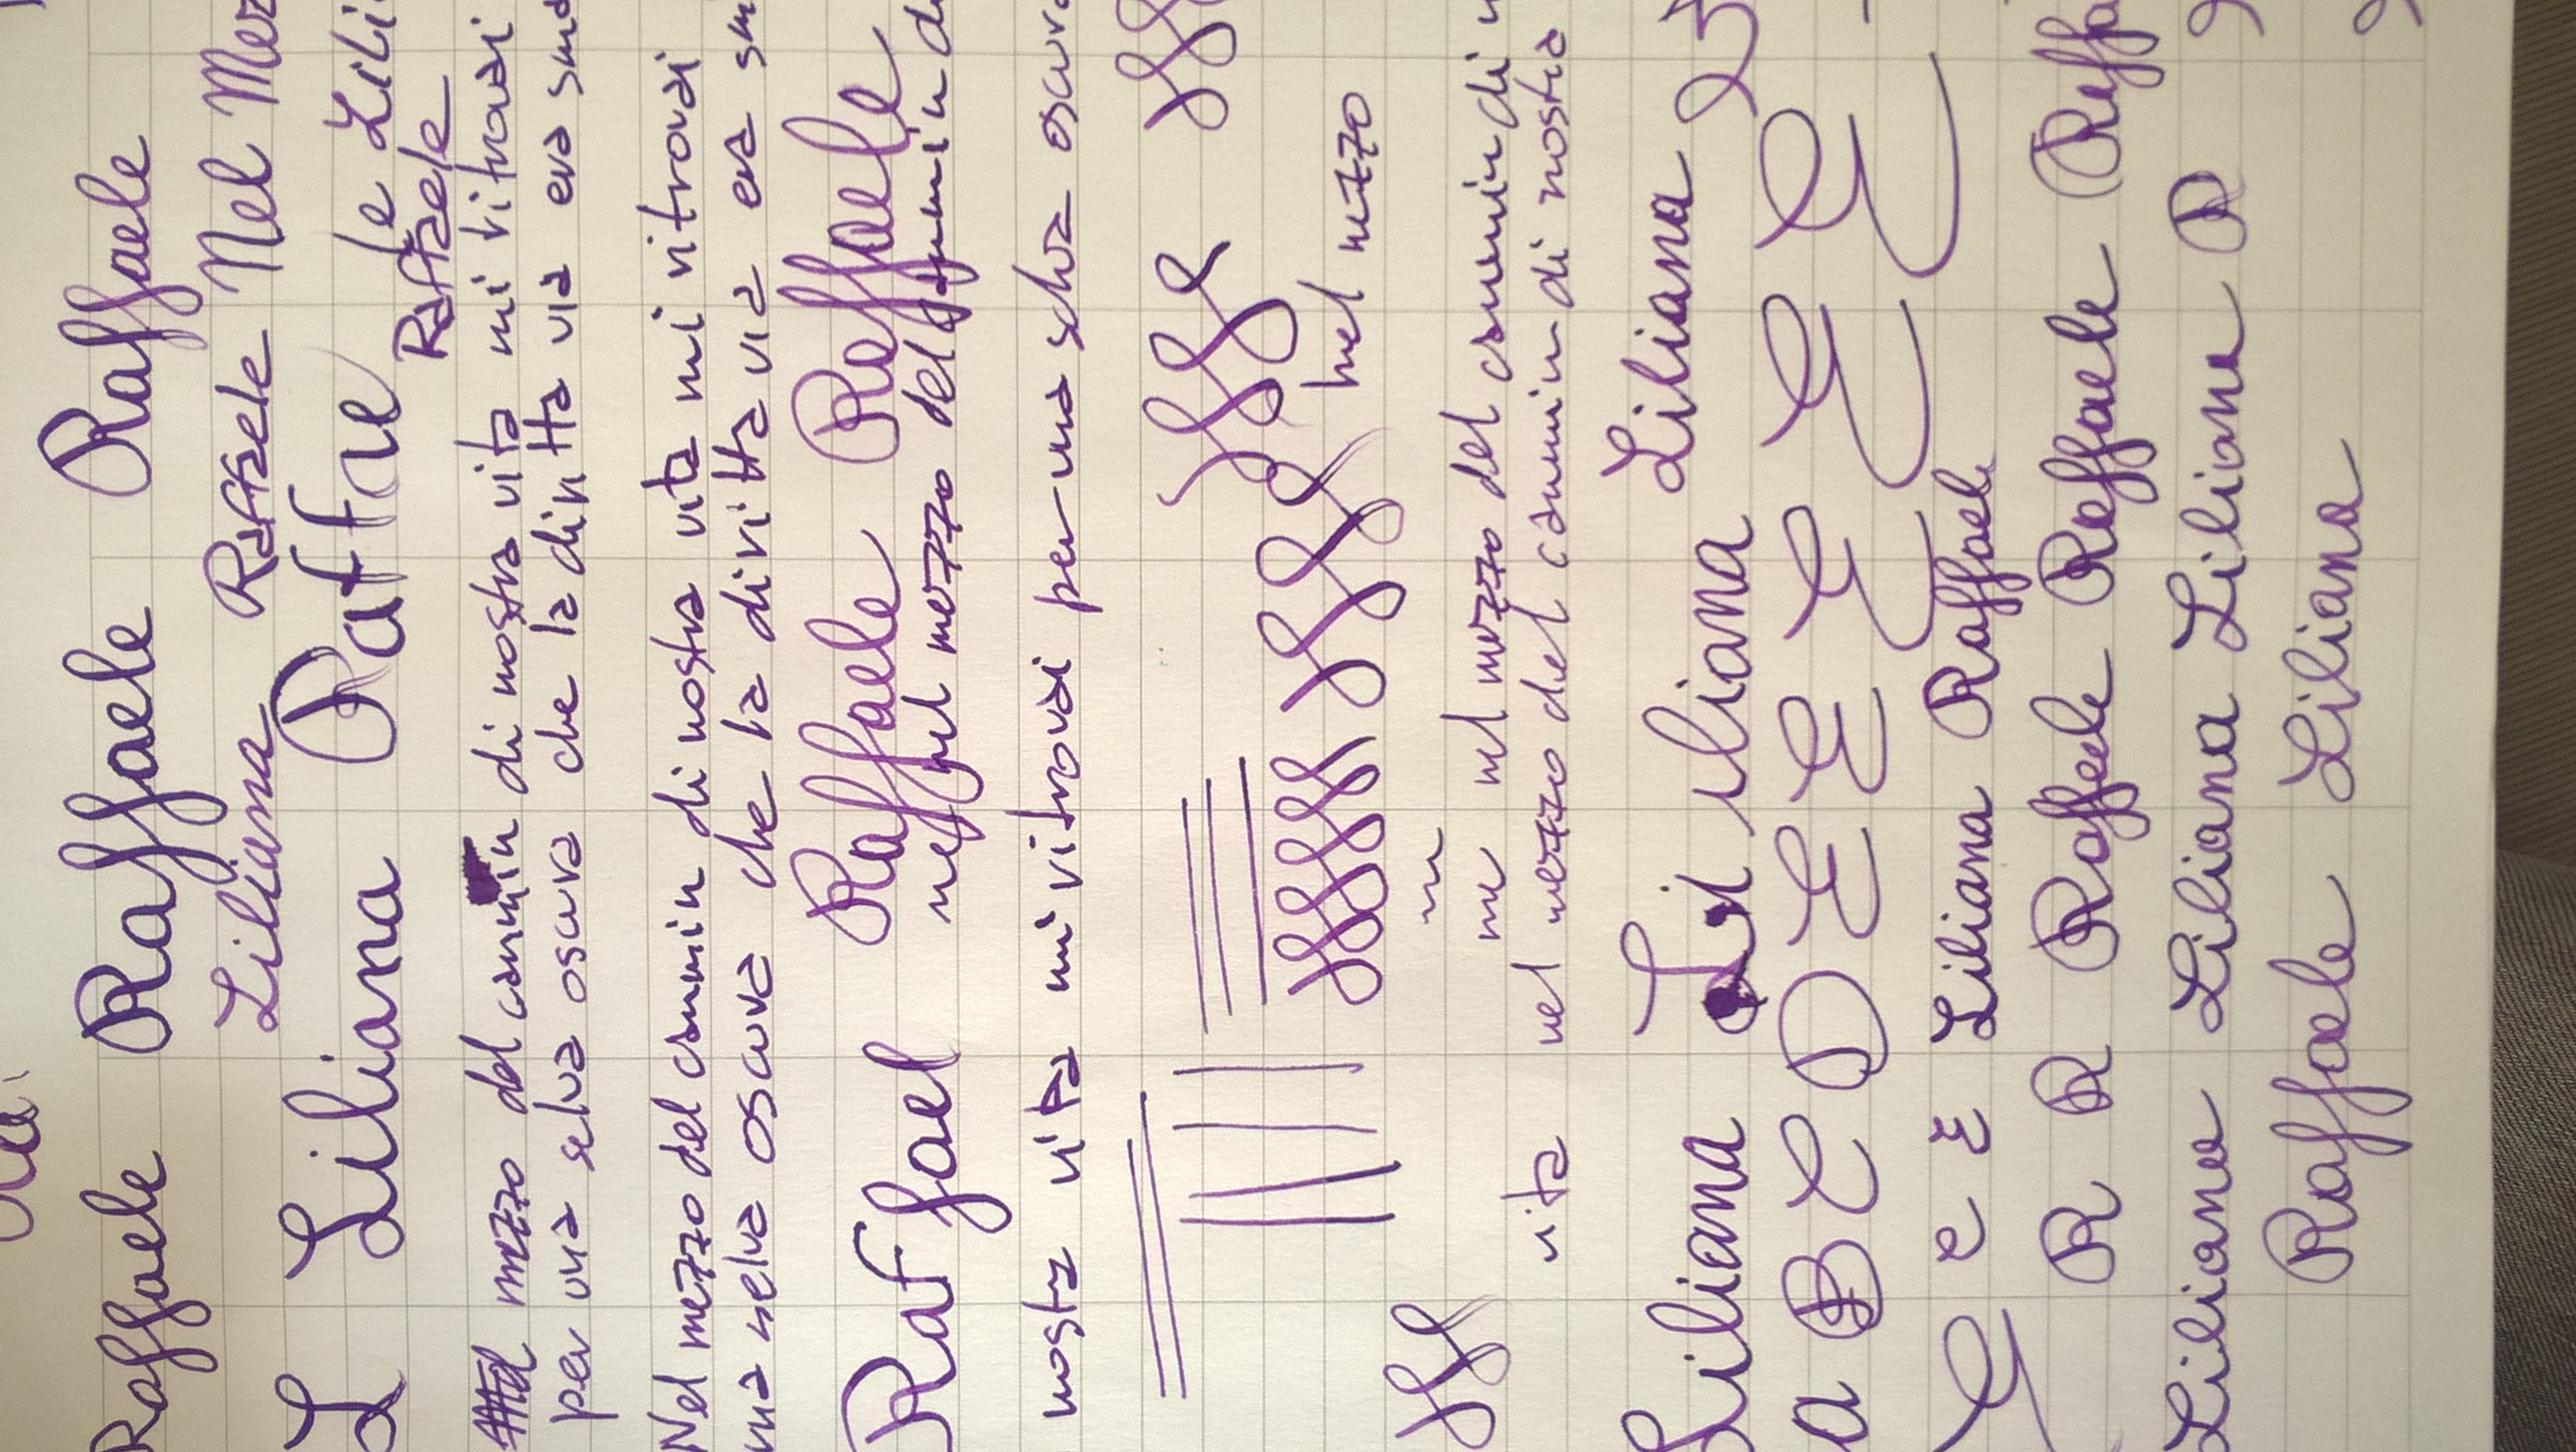 Raffaele Raffaele Raffaele Raffaele
Liliana Raffaele Nel Mez
L Liliana Raffae le Lili
Raffaele
mezzo del cammin di nostra vita mi ritrovai
per una selva oscura che la diritta via era sma
Nel mezzo del cammin di nostra vita mi ritrovai
una selva oscura che la diritta via era sm
Raffael Raffaele Raffaele
nel mezzo del cammin di
nostra vita mi ritrovai per una selva oscura
nel mezzo
m
m nel mezzo del cammin di n
vita nel mezzo del cammin di nostra
Liliana Liliana Liliana
a B C D E E E E E
e E Liliana Raffaele
R R Raffaele Raffaele Raffaele Raffa
Liliana Liliana Liliana R
Raffaele Liliana